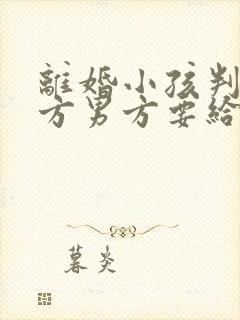 離婚小孩判
方男方要給
暮炎